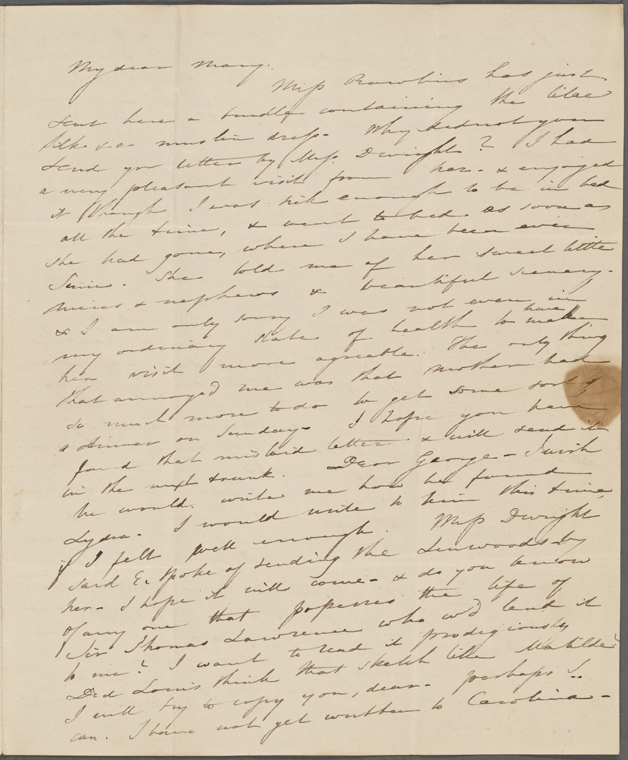 My dear Mary.
Miss Rawlins has just
sent here a bundle containing the lilac
silk & a muslin dress. Why did not you
send your letter by Miss Dwight? I had
a very pleasant visit from her - & enjoyed
it though I was sick enough to be in bed
all the time, & went to bed as soon as
she had gone, where I have been ever
since. She told me of her sweet little
nieces & nephews & beautiful scenery.
& I am only sorry I was not even in
my ordinary state of health to have made
her visit more agreable. The only thing
that annoyed me was that mother had
so much more to do to get some sort of
a dinner on Sunday. I hope you have
found that mislaid letter & will send it
in the next trunk. Dear George - I wish
he would write me how he found
Lydia. I would write to him this time
if I felt well enough. Miss Dwight
said E. spoke of sending the Linwoods by
her - I hope it will come - & do you know
of any one that possesses the life of
Sir Thomas Lawrence who w'd lend it
to me? I want to read it prodigiously
Did Louis think that sketch like Matilda?
I will try to copy you, dear - perhaps I
can. I have not yet written to Carolina -